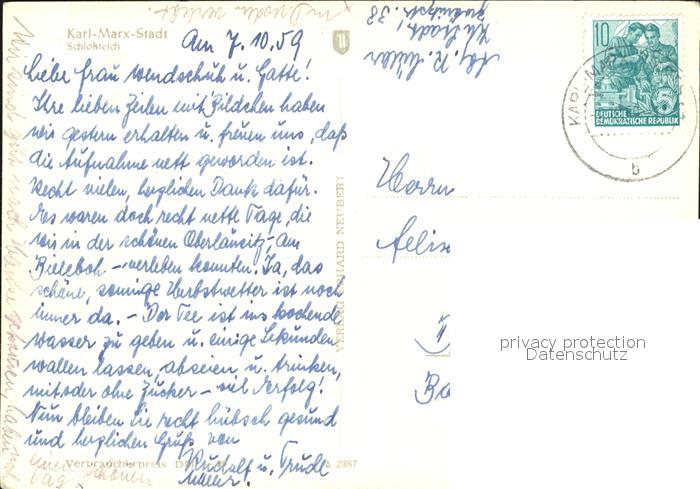 Karl-Marx-Stadt
Schloßteich
Am 7.10.59
Liebe Frau Wendschuh u. Gatte!
Ihre lieben Zeilen mit Bildchen haben
wir gestern erhalten u. freuen uns, daß
die Aufnahme nett geworden ist.
Recht vielen, herzlichen Dank dafür.
Es waren doch recht nette Tage, die
wir in der schönen Oberlausitz – am
Bieleboh – verleben konnten. Ja, das
schöne, sonnige Herbstwetter ist noch
immer da. – Der Tee ist ins kochende
Wasser zu geben u. einige Sekunden
wallen lassen, abseien u. trinken,
mit oder ohne Zucker – viel Erfolg!
Nun bleiben Sie recht hübsch gesund
und herzlichen Gruß von
Rudolf u. Trude
Verbraucherpreis
A 2387
einen schönen
Tag
in Dresden verlebt.
VERLAG ERHARD NEUBERT
38
10
DEUTSCHE
DEMOKRATISCHE REPUBLIK
5
KARL-MARX
b
Herrn
Felix
privacy protection
Datenschutz